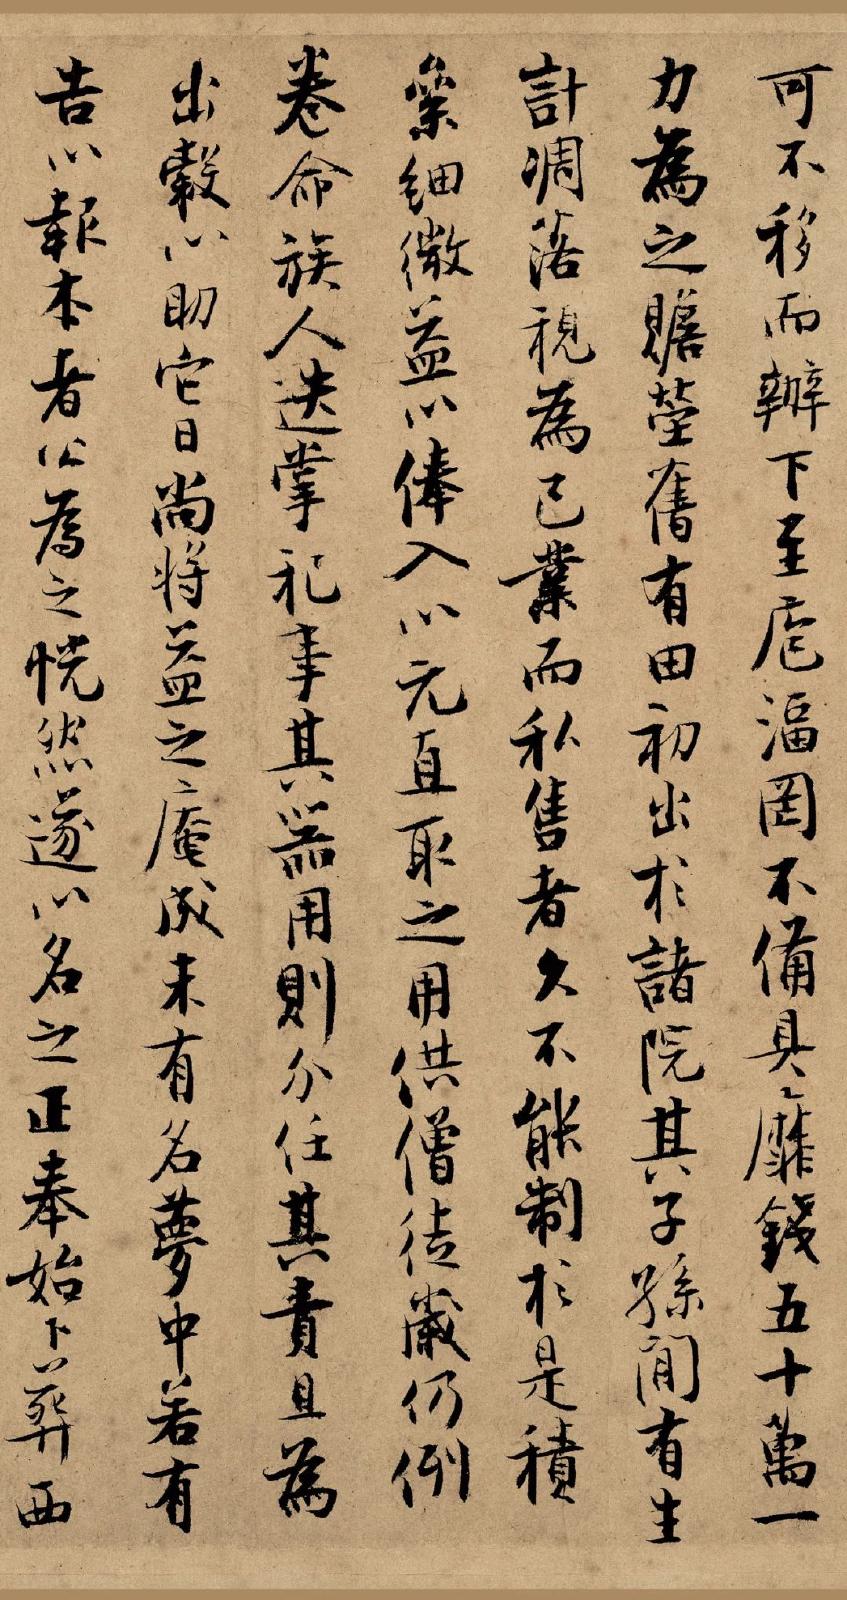 可不移而辦下至庖湢罔不備具靡錢五十萬一
力為之贍塋舊有田初出於諸院其子孫間有生
計凋落視為己業而私售者久不能制於是積
絫細微益以俸入以元直取之用供僧徒歲仍例
卷命族人迭掌祀事其器用則分任其責且為
出穀以助它日尚將益之庵成未有名夢中若有
告以報本者公為之恍然遂以名之正奉始卜葬西